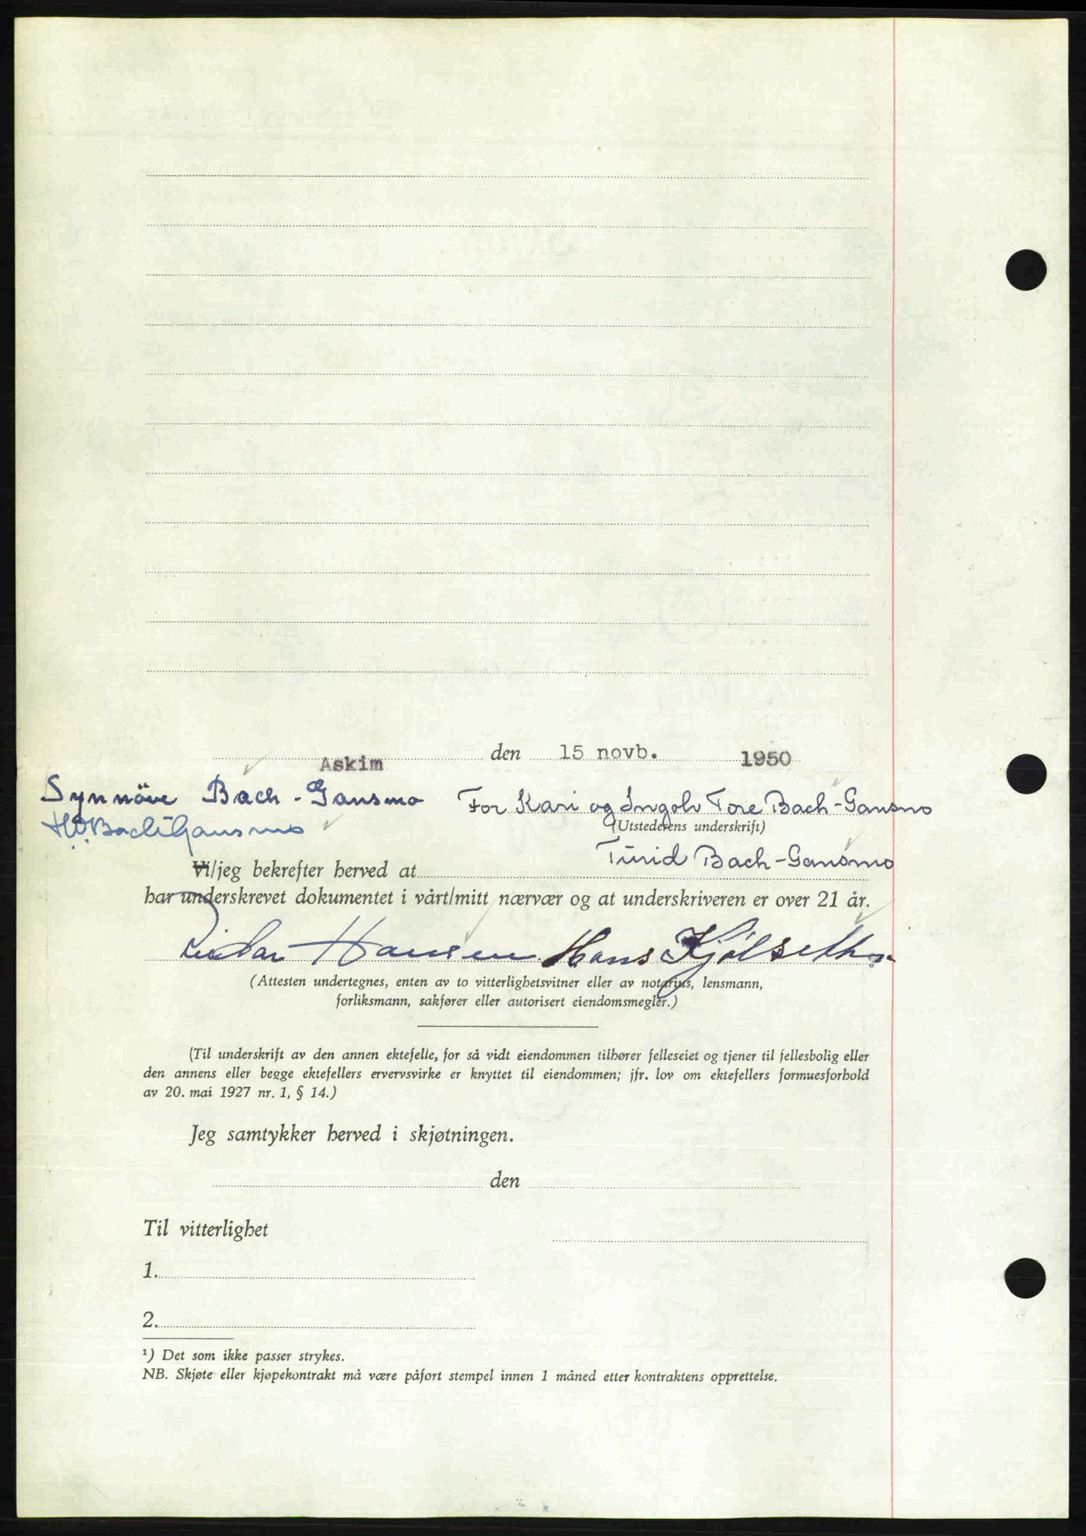 Askim den 15 novb. 1950
Synnöve Bach-Gansmo For Kari og Ingolv Tore Bach-Gansmo
Bach-Gansmo (Utstederens underskrift)
Turid Bach-Gansmo
Vi/jeg bekrefter herved at
har underskrevet dokumentet i vårt/mitt nærvær og at underskriveren er over 21 år.
Hansen Hans Kjølseth
(Attesten undertegnes, enten av to vitterlighetsvitner eller av notarius, lensmann,
forliksmann, sakfører eller autorisert eiendomsmegler.)
(Til underskrift av den annen ektefelle, for så vidt eiendommen tilhører felleseiet og tjener til fellesbolig eller
den annens eller begge ektefellers ervervsvirke er knyttet til eiendommen; jfr. lov om ektefellers formuesforhold
av 20. mai 1927 nr. 1, § 14.)
Jeg samtykker herved i skjøtningen.
den
Til vitterlighet
1.
2.
¹) Det som ikke passer strykes.
NB. Skjøte eller kjøpekontrakt må være påført stempel innen 1 måned etter kontraktens opprettelse.